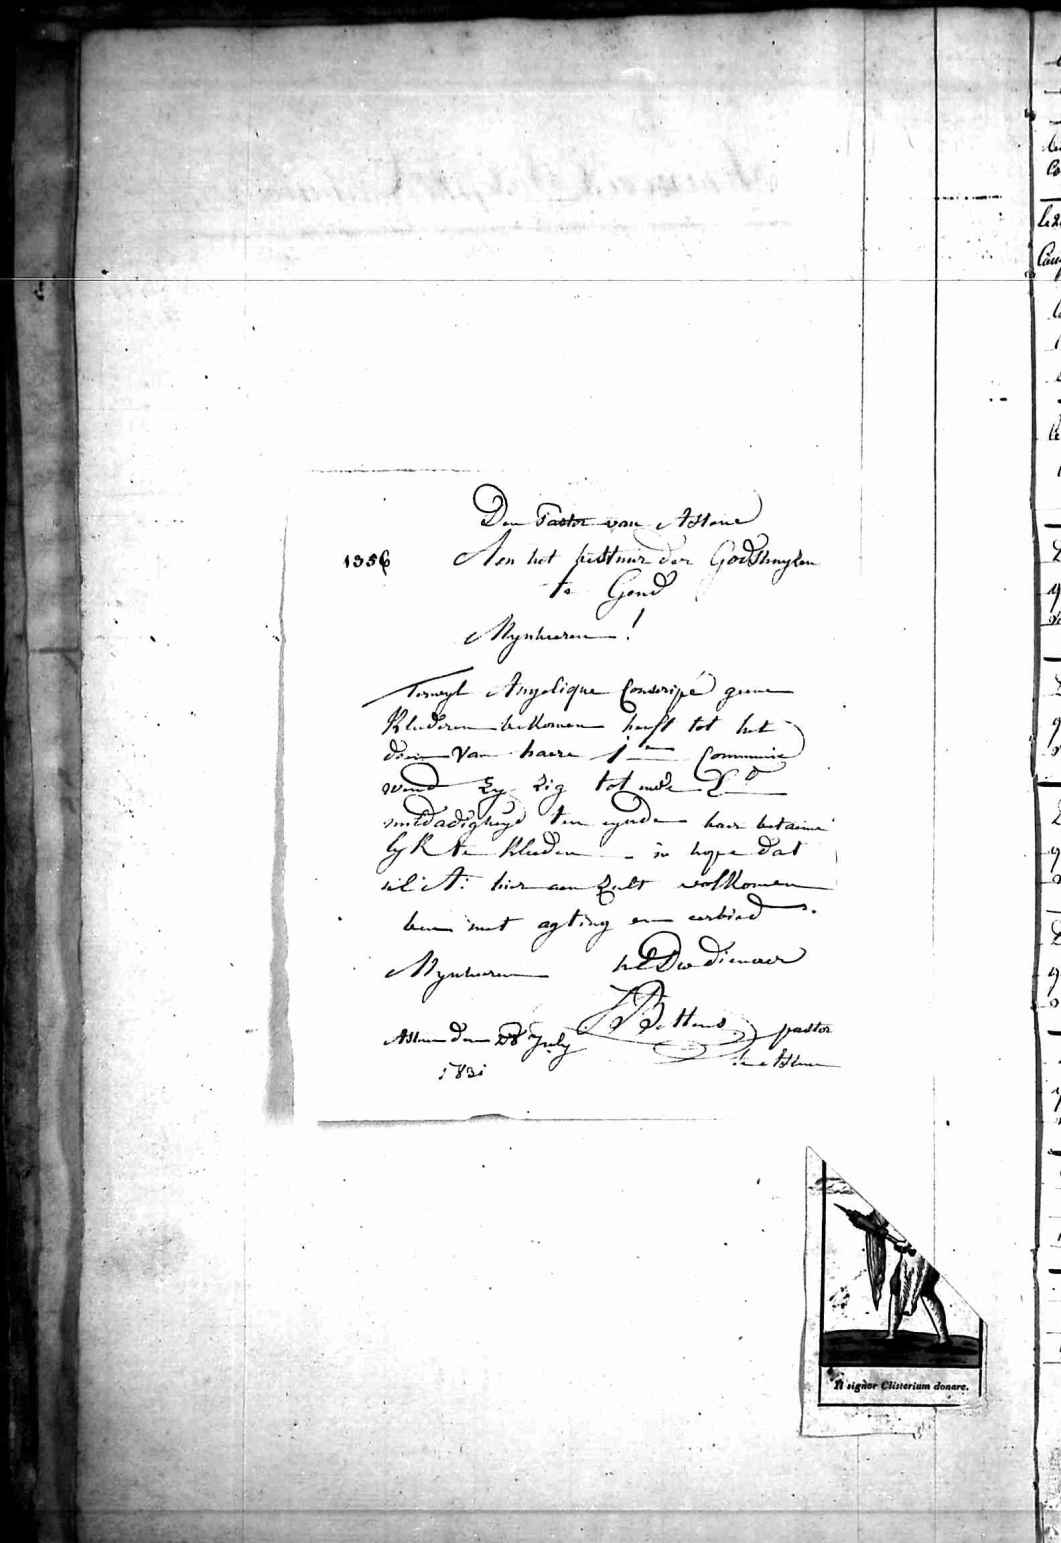 Den Pastor van Astene
1356 Aen het bestuur der Godshuyzen
te Gend
Mynheeren !
Terwyl Angelique Conscripé geene
Kleederen bekomen heeft tot het
doen van haere 1e Communie
wend Zy Zig tot
mildadigheyd ten eynde haer betaeme
lyk te kleeden - in hope dat
hier aen Zult volkomen
ben met agting en eerbied
Mynheeren Dw dienaer
Bettens pastor
Astene den 28 July
te Astene
1831
Il signor Clisterium donare.